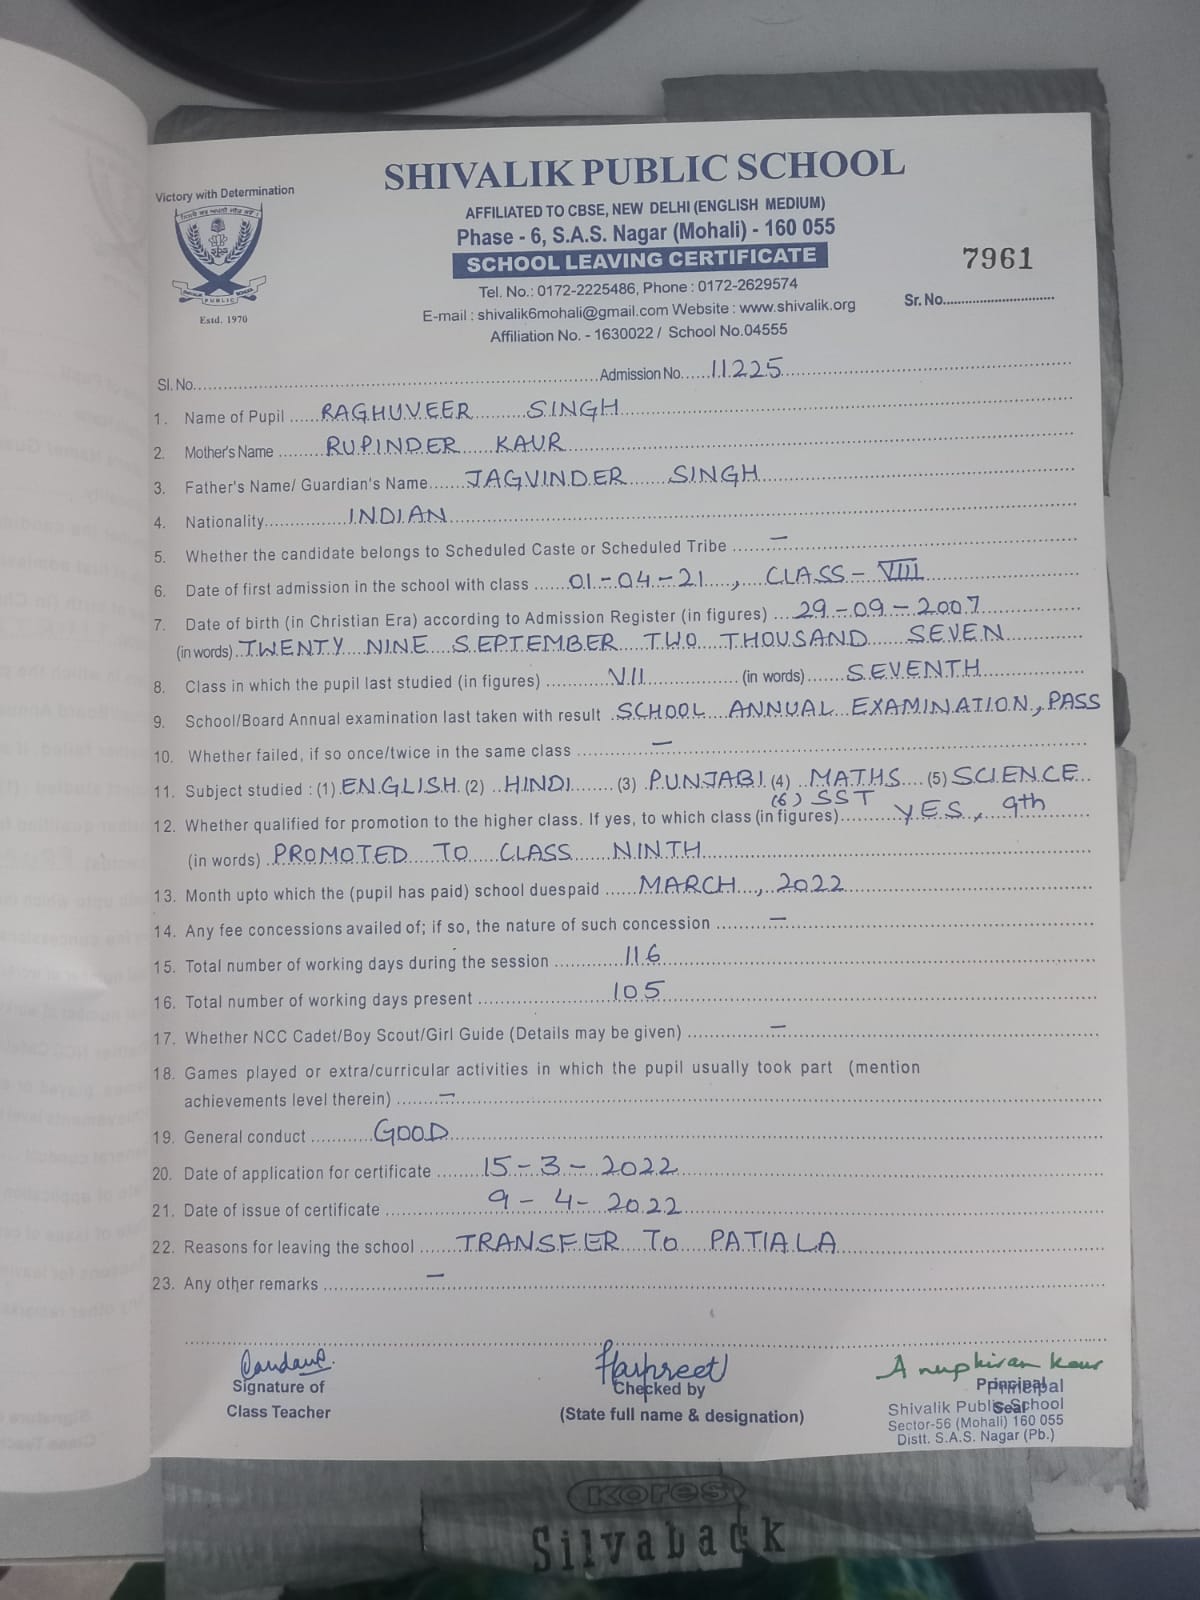 SHIVALIK PUBLIC SCHOOL
Victory with Determination
AFFILIATED TO CBSE, NEW DELHI (ENGLISH MEDIUM)
Phase - 6, S.A.S. Nagar (Mohali) - 160 055
SCHOOL LEAVING CERTIFICATE
7961
Tel. No.: 0172-2225486, Phone : 0172-2629574
E-mail : shivalik6mohali@gmail.com Website : www.shivalik.org
Sr. No.
Estd. 1970
Affiliation No. - 1630022 / School No.04555
Sl. No. Admission No. 11225
1. Name of Pupil RAGHUVEER SINGH
2. Mother's Name RUPINDER KAUR
3. Father's Name/ Guardian's Name JAGVINDER SINGH
4. Nationality INDIAN
5. Whether the candidate belongs to Scheduled Caste or Scheduled Tribe —
6. Date of first admission in the school with class 01-04-21, CLASS - VIII
7. Date of birth (in Christian Era) according to Admission Register (in figures) 29-09-2007
(in words) TWENTY NINE SEPTEMBER TWO THOUSAND SEVEN
8. Class in which the pupil last studied (in figures) VII (in words) SEVENTH
9. School/Board Annual examination last taken with result SCHOOL ANNUAL EXAMINATION, PASS
10. Whether failed, if so once/twice in the same class —
11. Subject studied : (1) ENGLISH (2) HINDI (3) PUNJABI (4) MATHS (5) SCIENCE
(6) SST
12. Whether qualified for promotion to the higher class. If yes, to which class (in figures) YES, 9th
(in words) PROMOTED TO CLASS NINTH
13. Month upto which the (pupil has paid) school duespaid MARCH, 2022
14. Any fee concessions availed of; if so, the nature of such concession —
15. Total number of working days during the session 116
16. Total number of working days present 105
17. Whether NCC Cadet/Boy Scout/Girl Guide (Details may be given) —
18. Games played or extra/curricular activities in which the pupil usually took part (mention
achievements level therein) —
19. General conduct GOOD
20. Date of application for certificate 15-3-2022
21. Date of issue of certificate 9-4-2022
22. Reasons for leaving the school TRANSFER TO PATIALA
23. Any other remarks —
Harpreet Anupkiran Kaur
Signature of
Class Teacher
Checked by
(State full name & designation)
Principal
Seal
Principal
Shivalik Public School
Sector-56 (Mohali) 160 055
Distt. S.A.S. Nagar (Pb.)
Kores
Silvaback